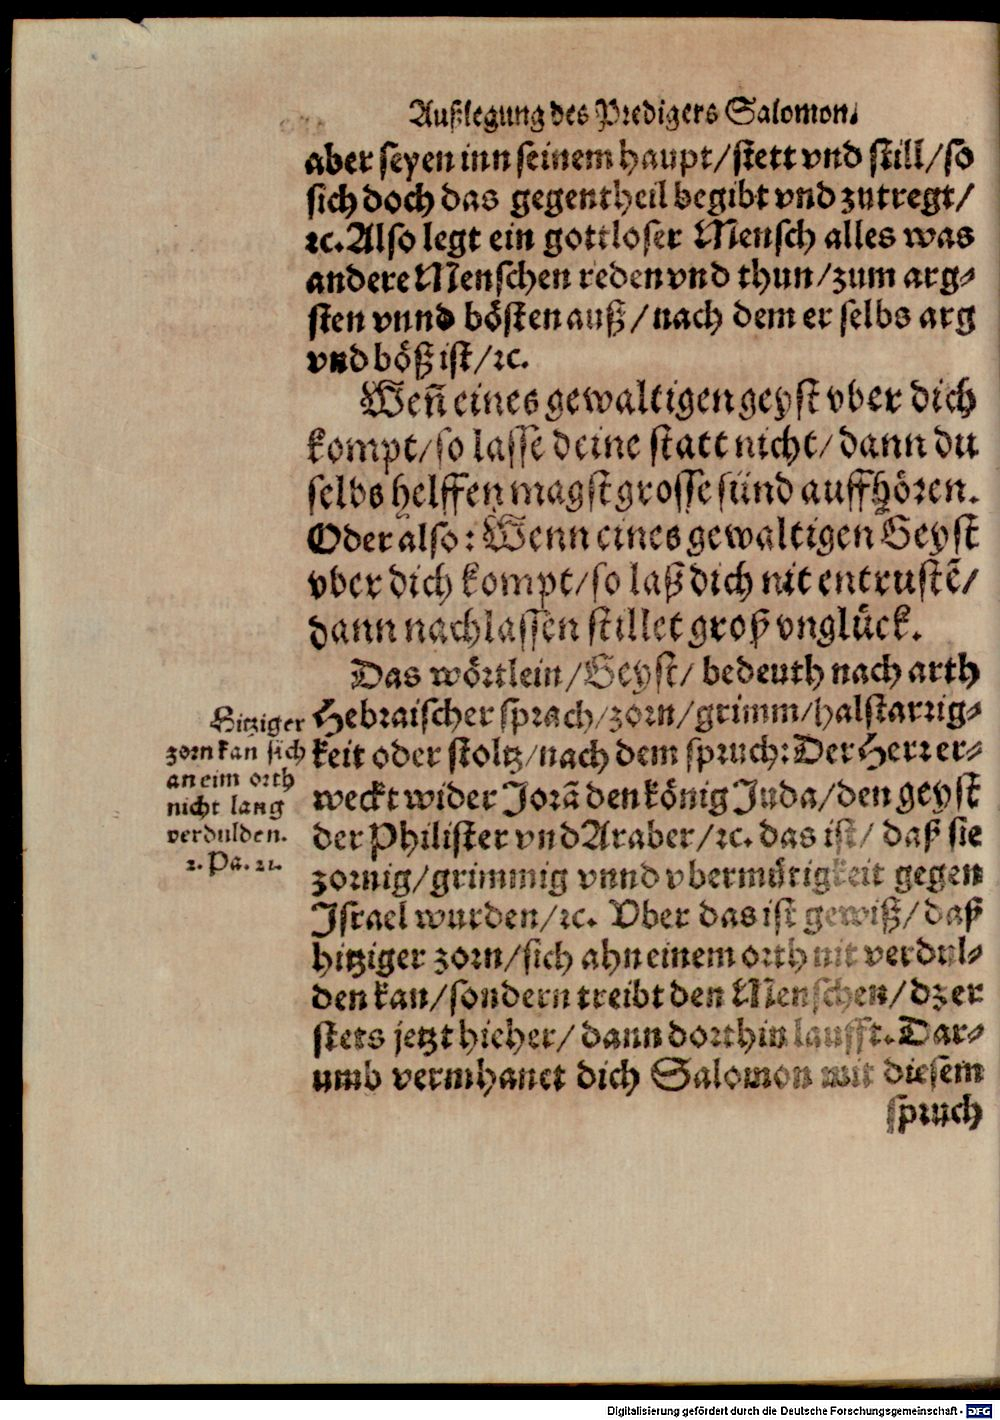 Außlegung des Predigers Salomon.
aber seyen inn seinem haupt/stett vnd still/so
sich doch das gegentheil begibt vnd zutregt/
ꝛc. Also legt ein gottloser Mensch alles was
andere Menschen reden vnd thun/zum arg⸗
sten vnnd bösten auß/nach dem er selbs arg
vnd böß ist/ꝛc.
Weñ eines gewaltigen geyst vber dich
kompt/so lasse deine statt nicht/dann du
selbs helffen magst grosse sünd auffhören.
Oder also: Wenn eines gewaltigen Geyst
vber dich kompt/so laß dich nit entrustẽ/
dann nachlassen stillet groß vnglück.
Das wörtlein/Geyst/bedeuth nach arth
Hebraischer sprach/zorn/grimm/halstarrig⸗
keit oder stoltz/nach dem spruch: Der Herr er⸗
weckt wider Jorã den könig Juda/den geyst
der Philister vnd Araber/ꝛc. das ist/daß sie
zornig/grimmig vnnd vbermütigkeit gegen
Israel wurden/ꝛc. Vber das ist gewiß/daß
hitziger zorn/sich ahn einem orth nit verdul⸗
den kan/sondern treibt den Menschen/dz er
stets jetzt hieher/dann dorthin laufft. Dar⸗
umb vermhanet dich Salomon mit diesem
spruch
Hitziger
zorn kan sich
an eim orth
nicht lang
verdulden.
2. Pa. 21.
Digitalisierung gefördert durch die Deutsche Forschungsgemeinschaft - DFG